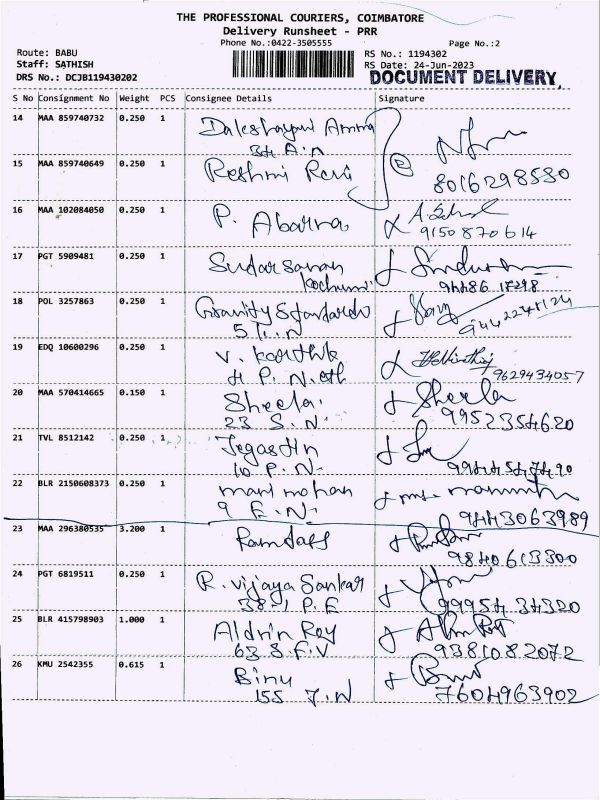 THE PROFESSIONAL COURIERS, COIMBATORE
Delivery Runsheet - PRR
Phone No.:0422-3505555
Page No.:2
Route: BABU
RS No.: 1194302
Staff: SATHISH
RS Date: 24-Jun-2023
DRS No.: DCJB119430202
DOCUMENT DELIVERY,
S No Consignment No Weight PCS Consignee Details Signature
14 MAA 859740732 0.250 1
15 MAA 859740649 0.250 1 Reshmi Ravi
2
8016298530
16 MAA 102084050 0.250 1 P. Abarna
9150870614
17 PGT 5909481 0.250 1 Sudarsanan
18 POL 3257863 0.250 1 Gravity Standards
19 EDQ 10600296 0.250 1 V. Karthik
9629434057
20 MAA 570414665 0.150 1 Sheela Sheela
23 S.N 9952354620
21 TVL 8512142 0.250 1 Jegastin
10 P.N.
22 BLR 2150608373 0.250 1 mani mohan
9 E.N. 9443063989
23 MAA 296380535 3.200 1 Ramdass
9840613300
24 PGT 6819511 0.250 1 R. vijaya Sankar
38-1 P.E 9995434320
25 BLR 415798903 1.000 1 Aldrin Roy
63 S.F.V 9381082072
26 KMU 2542355 0.615 1 Binu
155 J.N 7604963902